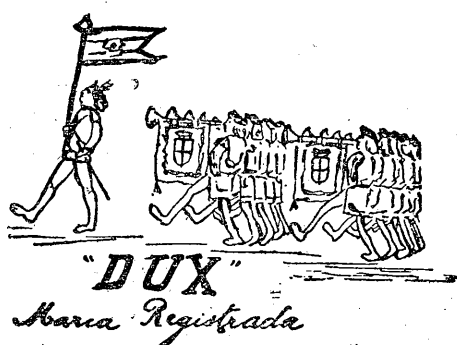 "DUX"
Marca Registrada